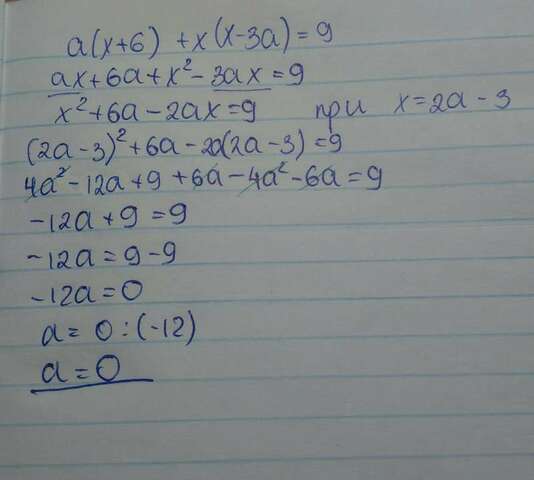 a(x+6) +x(x-3a)=9
ax+6a+x²-3ax=9
x²+6a-2ax=9 при x=2a-3
(2a-3)²+6a-2a(2a-3)=9
4a²-12a+9+6a-4a²-6a=9
-12a+9=9
-12a=9-9
-12a=0
a=0:(-12)
a=0